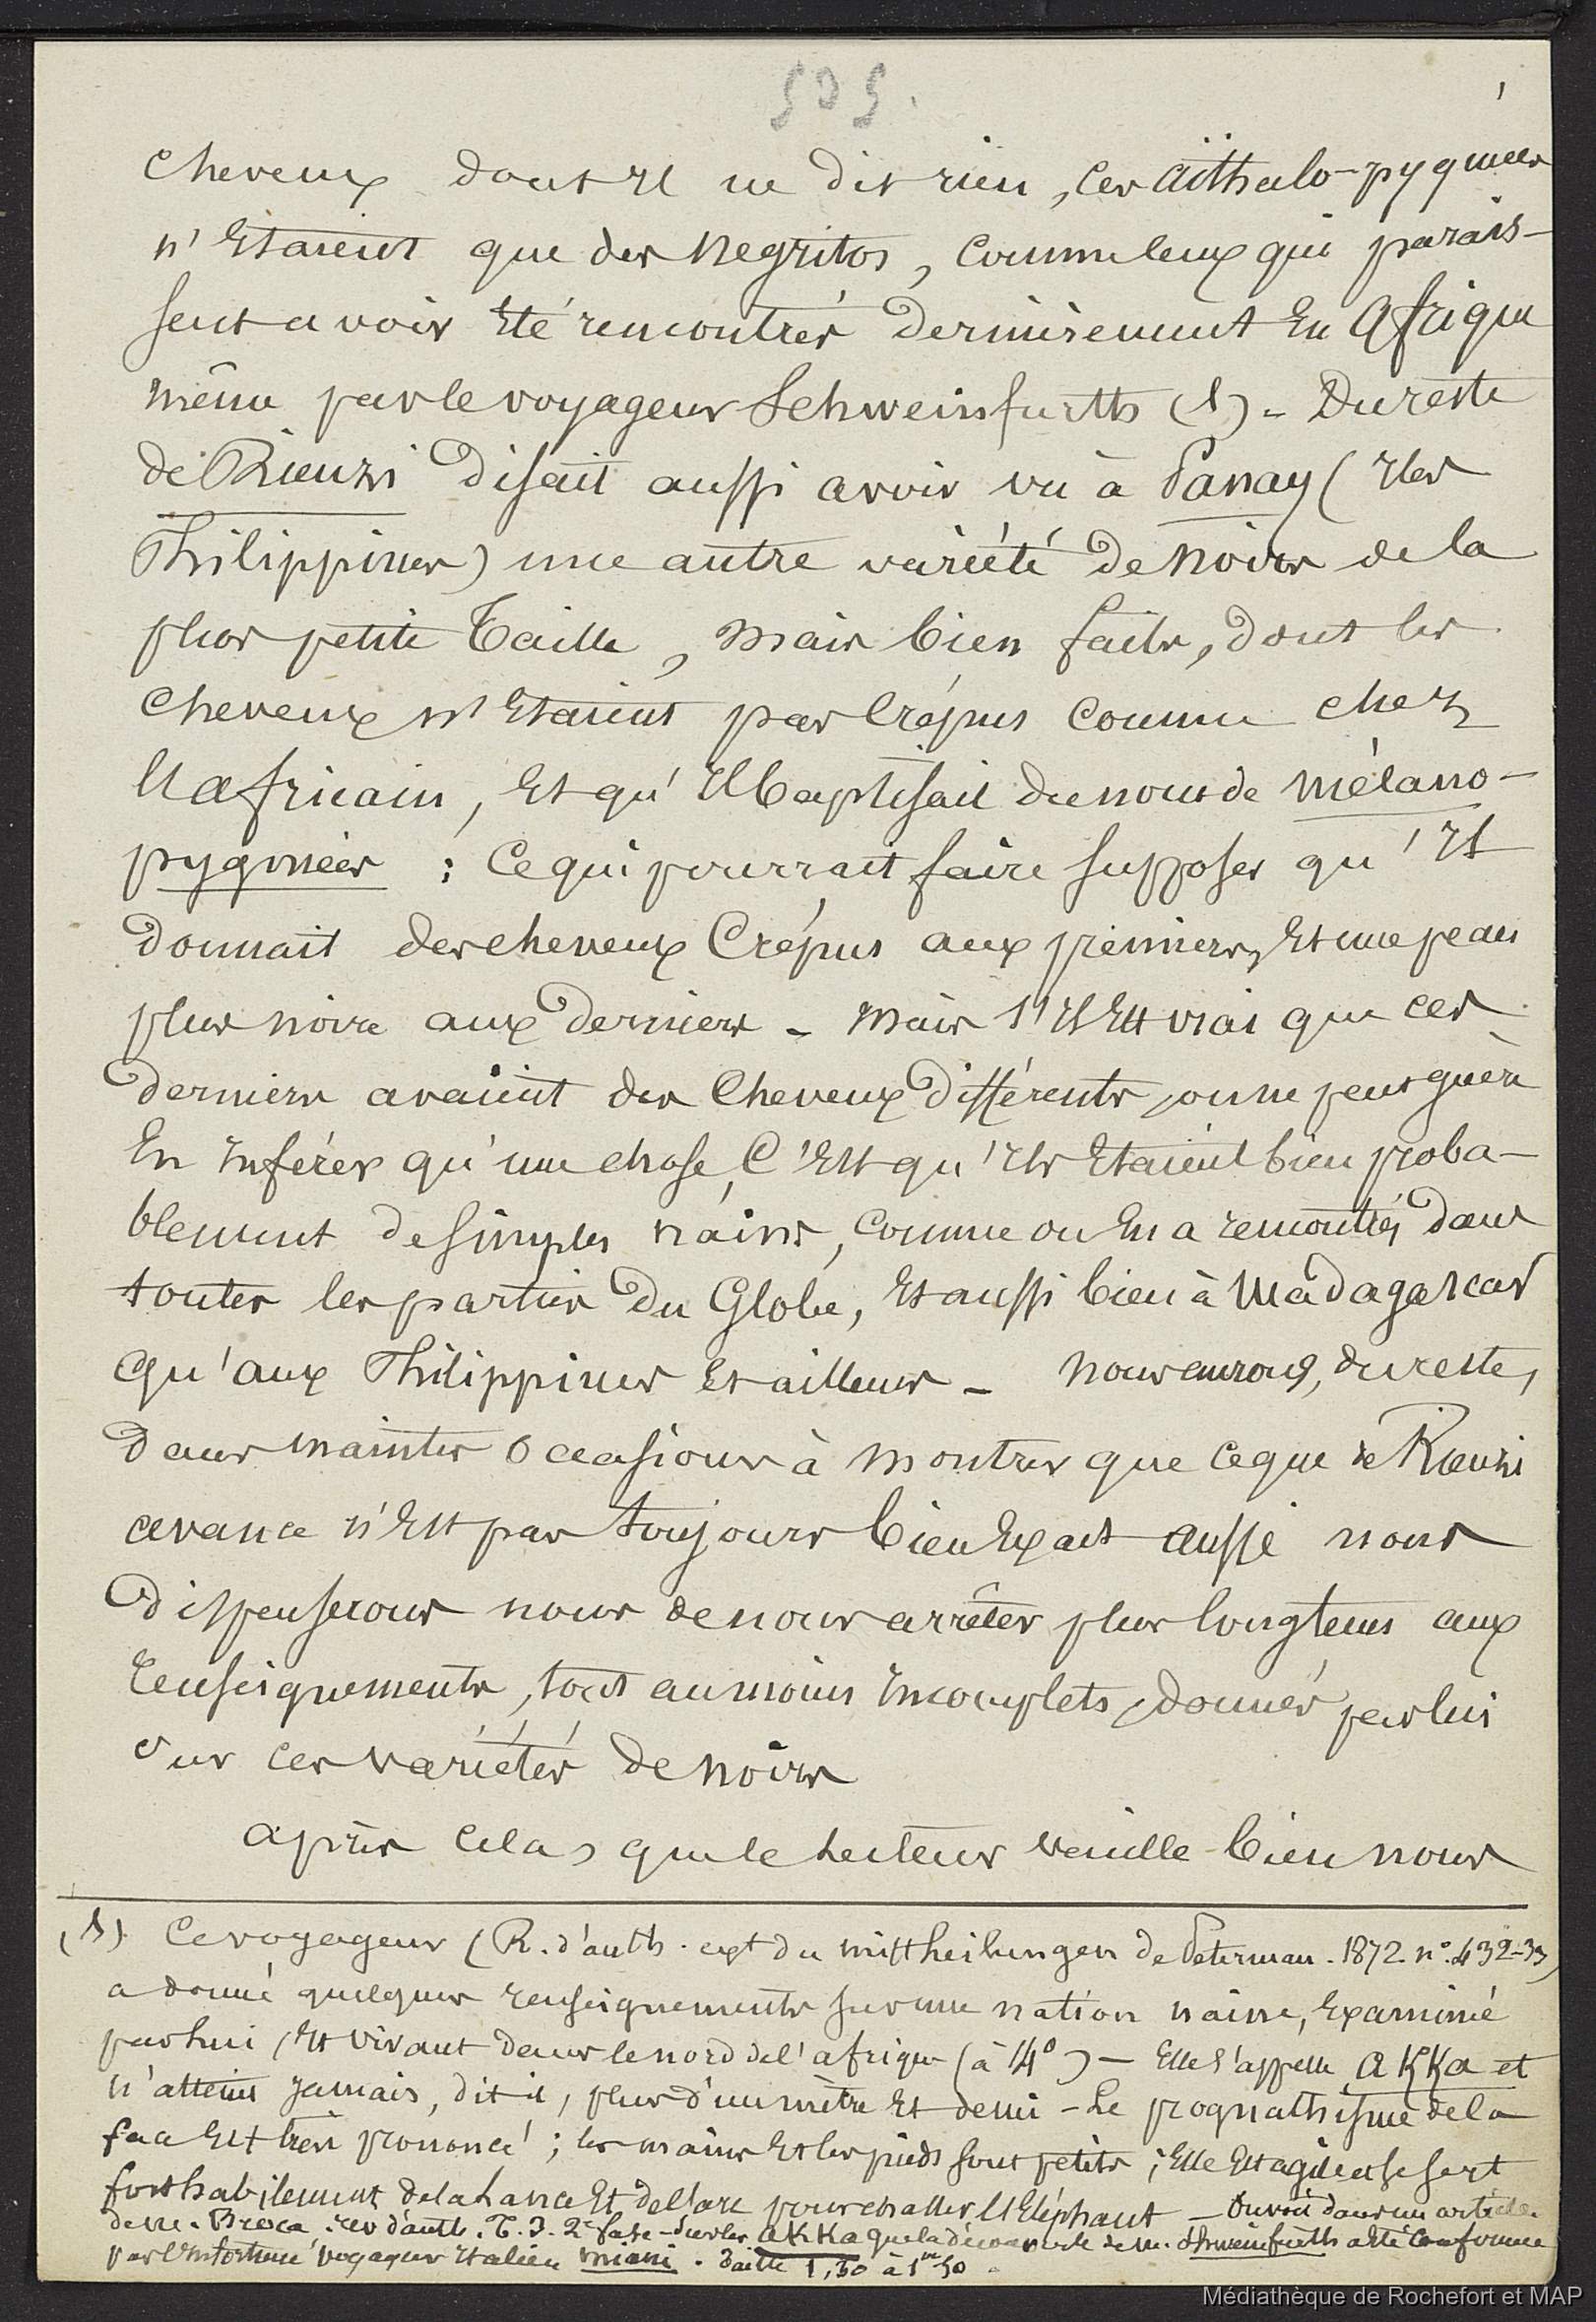 505.
cheveux dont il ne dit rien, ces aïthalo-pygmées
n'étaient que des Negritos, comme ceux qui parais-
sent avoir été rencontrés dernièrement en Afrique
même par le voyageur Schweinfurth (1) - Du reste
de Rienzi disait aussi avoir vu à Panay (Iles
Philippines) une autre variété de noirs de la
plus petite taille, mais bien faits, dont les
cheveux n'étaient pas crépus comme chez
l'africain, et qu'il baptisait du nom de mélano-
pygmées : ce qui pourrait faire supposer qu'il
donnait des cheveux crépus aux premiers, et une peau
plus noire aux derniers - mais s'il est vrai que ces
derniers avaient des cheveux différents, on ne peut guère
en inférer qu'une chose, c'est qu'ils étaient bien proba-
blement de simples nains, comme on en a rencontrés dans
toutes les parties du Globe, et aussi bien à Madagascar
qu'aux Philippines et ailleurs - nous aurons, du reste,
dans maintes occasions à montrer que ce que de Rienzi
avance n'est pas toujours bien exact aussi nous
dispenserons nous de nous arrêter plus longtems aux
renseignements, tout au moins incomplets, donnés par lui
sur ces variétés de noirs
après cela, que le lecteur veuille bien nous
(1) Ce voyageur (R. d'anth. ext du mittheilungen de Peterman. 1872. n°. 432-33)
a donné quelques renseignements sur une nation naine, examinée
par lui, et vivant dans le nord de l'afrique (à 4°) - Elle s'appelle AKKa et
n'atteint jamais, dit-il, plus d'un mètre et demi - Le prognathisme de la
face est très prononcé ; les mains et les pieds sont petits ; elle est agile et se sert
fort habilement de la lance et de l'arc pour chasser l'Eléphant - On voit dans un article
de M. Broca. rev d'anth. T. 3. 2e sur les AKKa que la découverte de M. Schweinfurth a été confirmée
par l'infortuné voyageur italien Miani. Taille 1,30 à 1m50.
Médiathèque de Rochefort et MAP